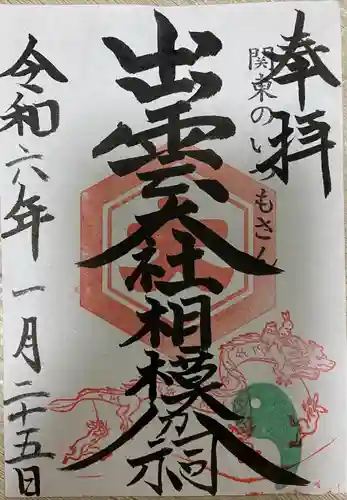 奉拝
関東のいづもさん
出雲大社相模分祠
令和六年一月二十五日